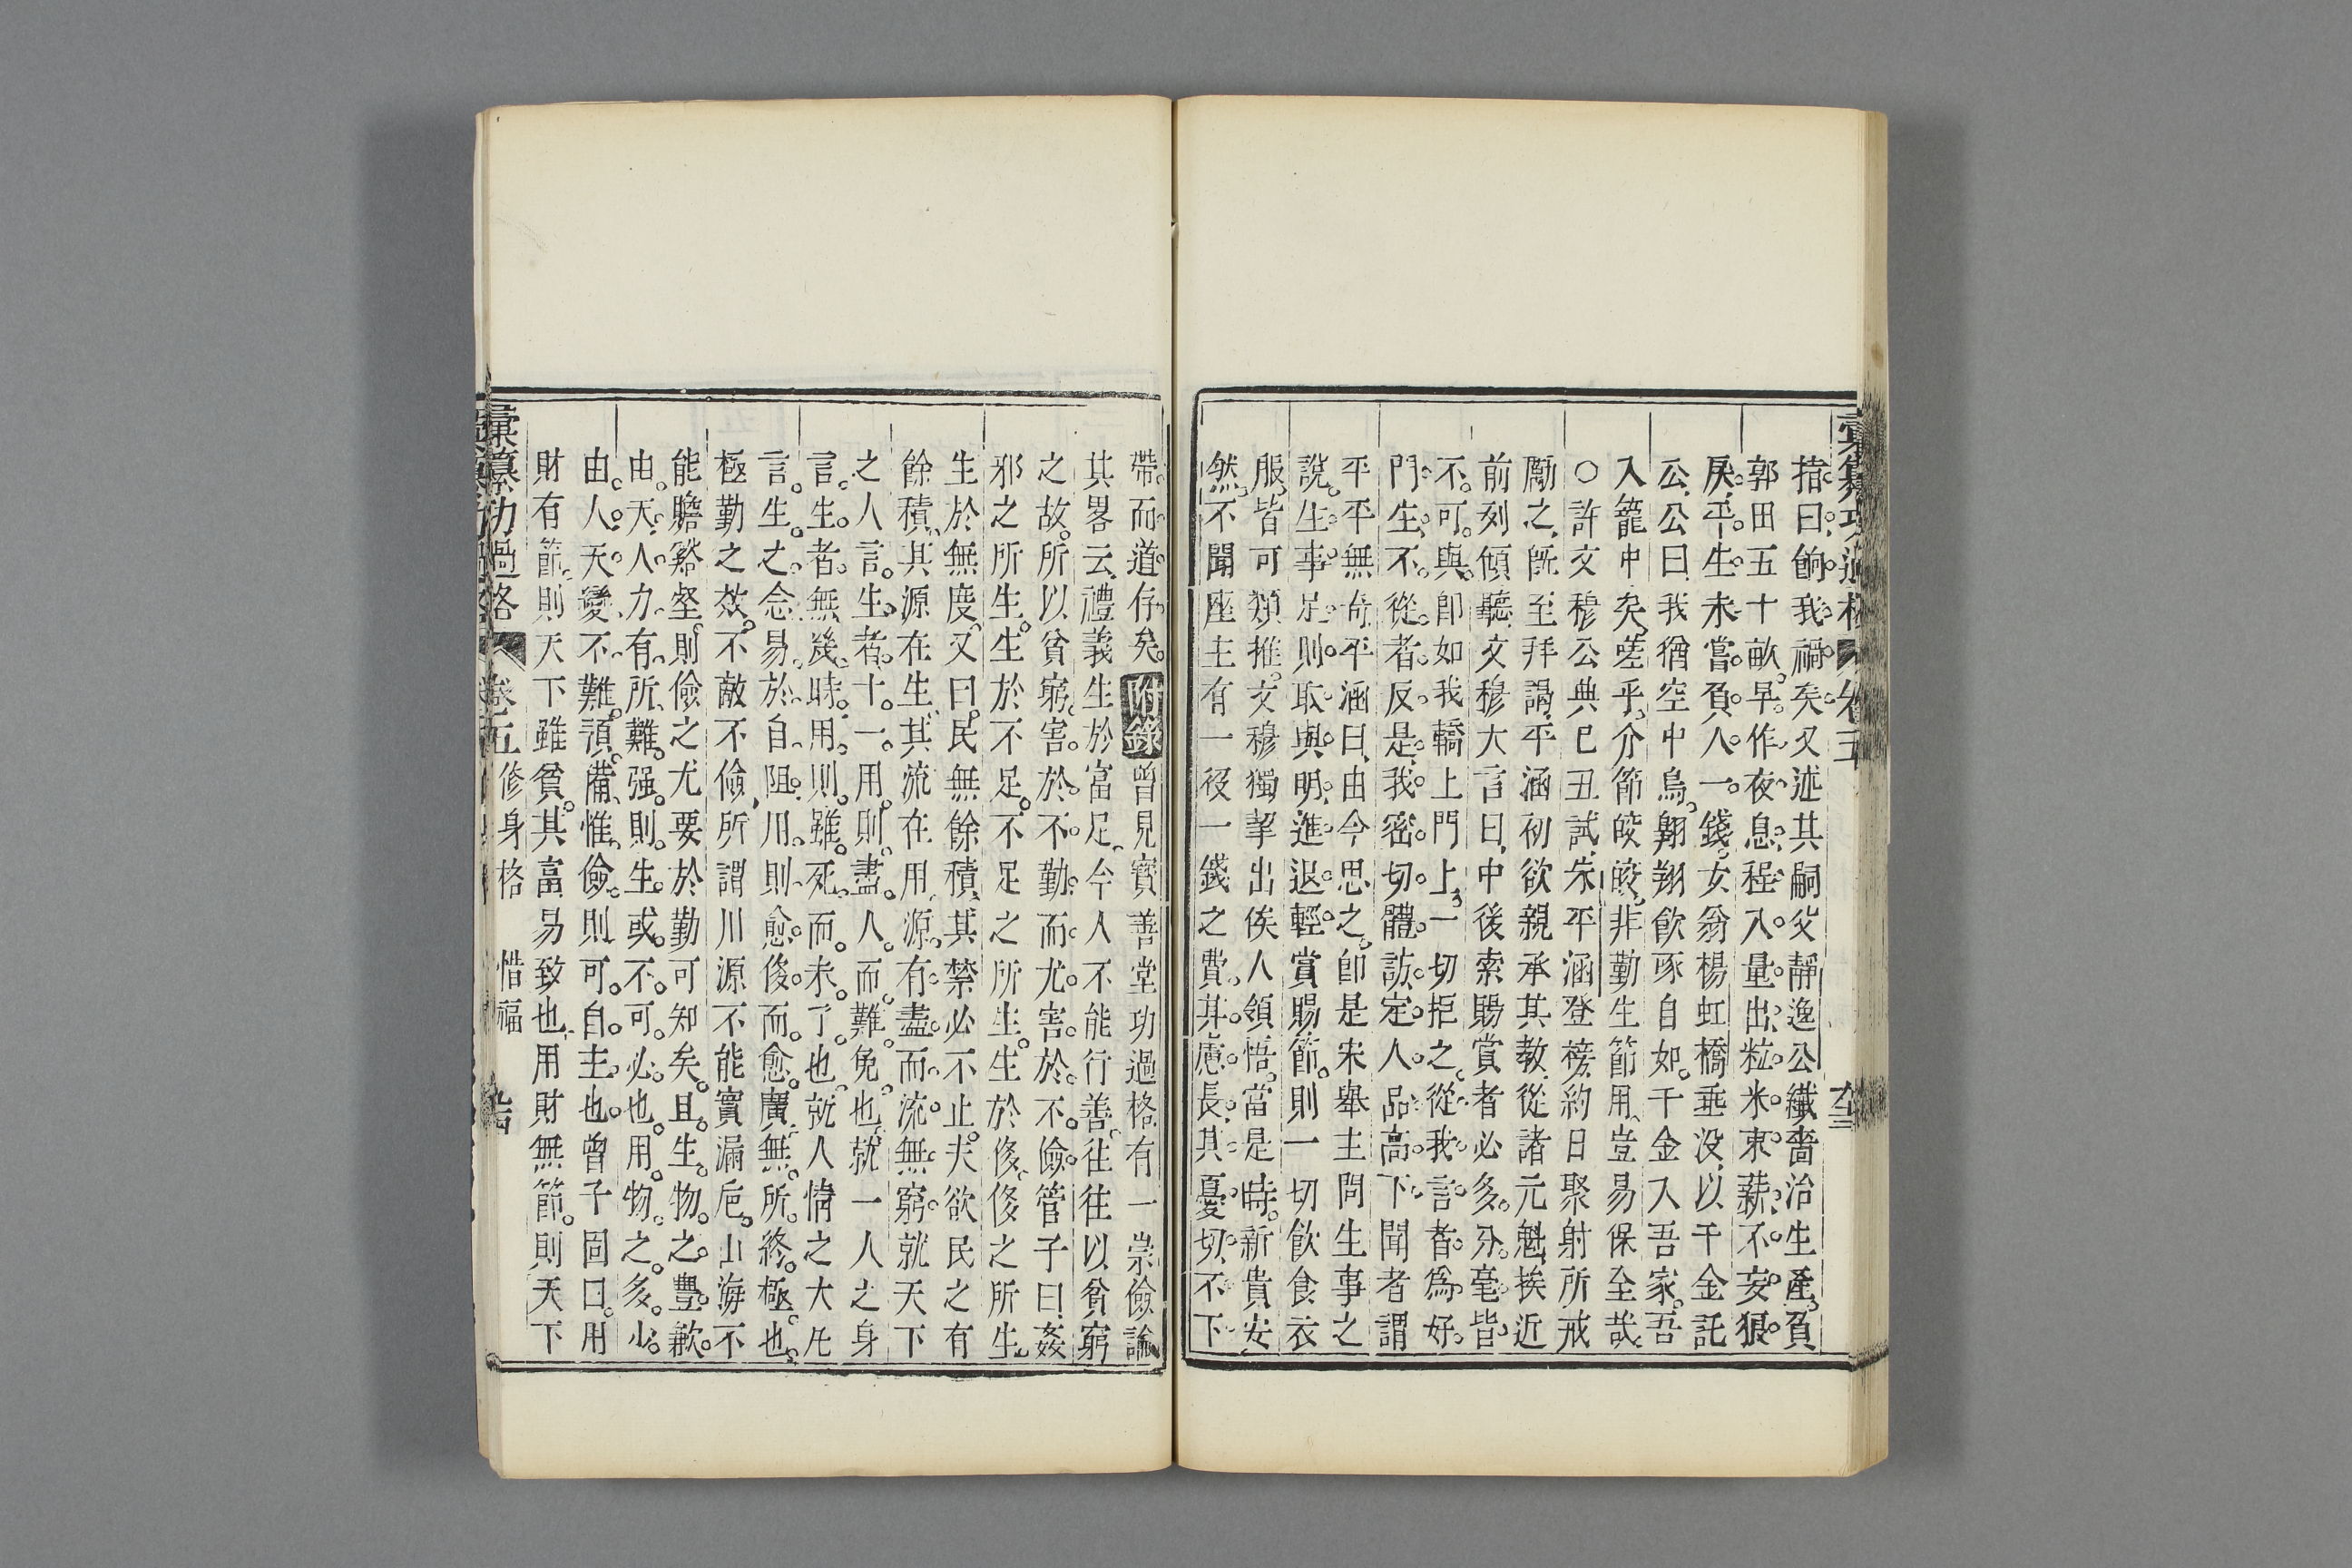 彙纂功過格 卷五
指曰餉我禍矣又述其嗣父靜逸公纖嗇治生產負
郭田五十畝早作夜息程入量出粒米束薪不妄狼
戾平生未嘗負人一錢女翁楊虹橋垂没以千金託
公公曰我猶空中鳥翱翔飲啄自如千金入吾家吾
入籠中矣嗟乎介節皎皎非勤生節用豈易保至哉
○許文穆公典己丑試朱平涵登榜約日聚射所戒
勵之旣至拜謁平涵初欲親承其教從諸元魁挨近
前列傾聽文穆大言曰中後索賜賞者必多分毫皆
不可與卽如我轎上門上一切拒之從我言者爲好
門生不從者反是我密切體訪定人品高下聞者謂
平平無奇平涵曰由今思之卽是宋舉主問生事之
說生事足則取與明進退輕賞賜節則一切飲食衣
服皆可類推文穆獨挈出俟人領悟當是時新貴安
然不聞座主有一役一錢之費其慮長其憂切不下
帶而道存矣附錄曾見寶善堂功過格有一崇儉論
其畧云禮義生於富足今人不能行善往往以貧窮
之故所以貧窮害於不勤而尤害於不儉管子曰姦
邪之所生生於不足不足之所生生於侈侈之所生
生於無度又曰民無餘積其禁必不止夫欲民之有
餘積其源在生其流在用源有盡而流無窮就天下
之人言生者十一用則盡人而難免也就一人之身
言生者無幾時用則雖死而未了也就人情之大凡
言生之念易於自阻用則愈侈而愈廣無所終極也
極勤之效不敵不儉所謂川源不能實漏巵山海不
能贍谿壑則儉之尤要於勤可知矣且生物之豐歉
由天人力有所難强則生或不可必也用物之多少
由人天變不難預備惟儉則可自主也曾子固曰用
財有節則天下雖貧其富易致也用財無節則天下
彙纂功過格 卷五 修身格 惜福